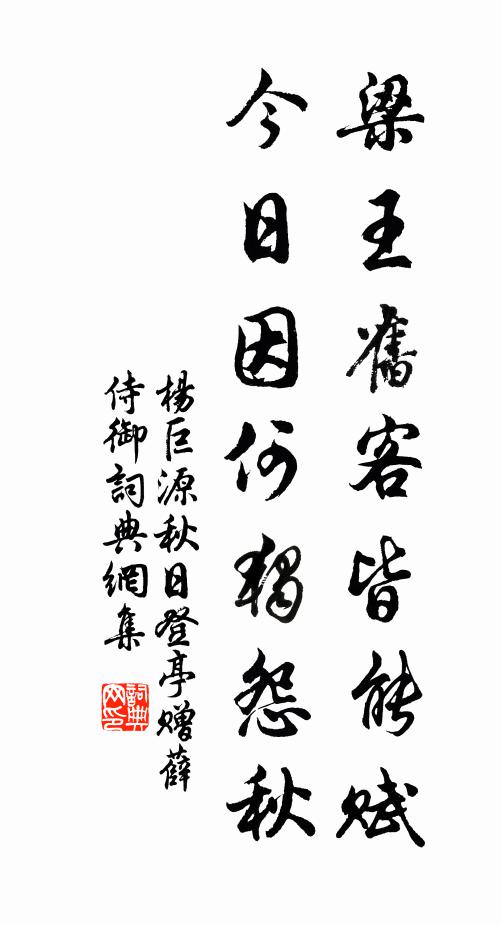 梁王舊客皆能賦
今日因何獨怨秋
楊巨源秋日登亭贈薛
侍御詞典網集
詞典網印